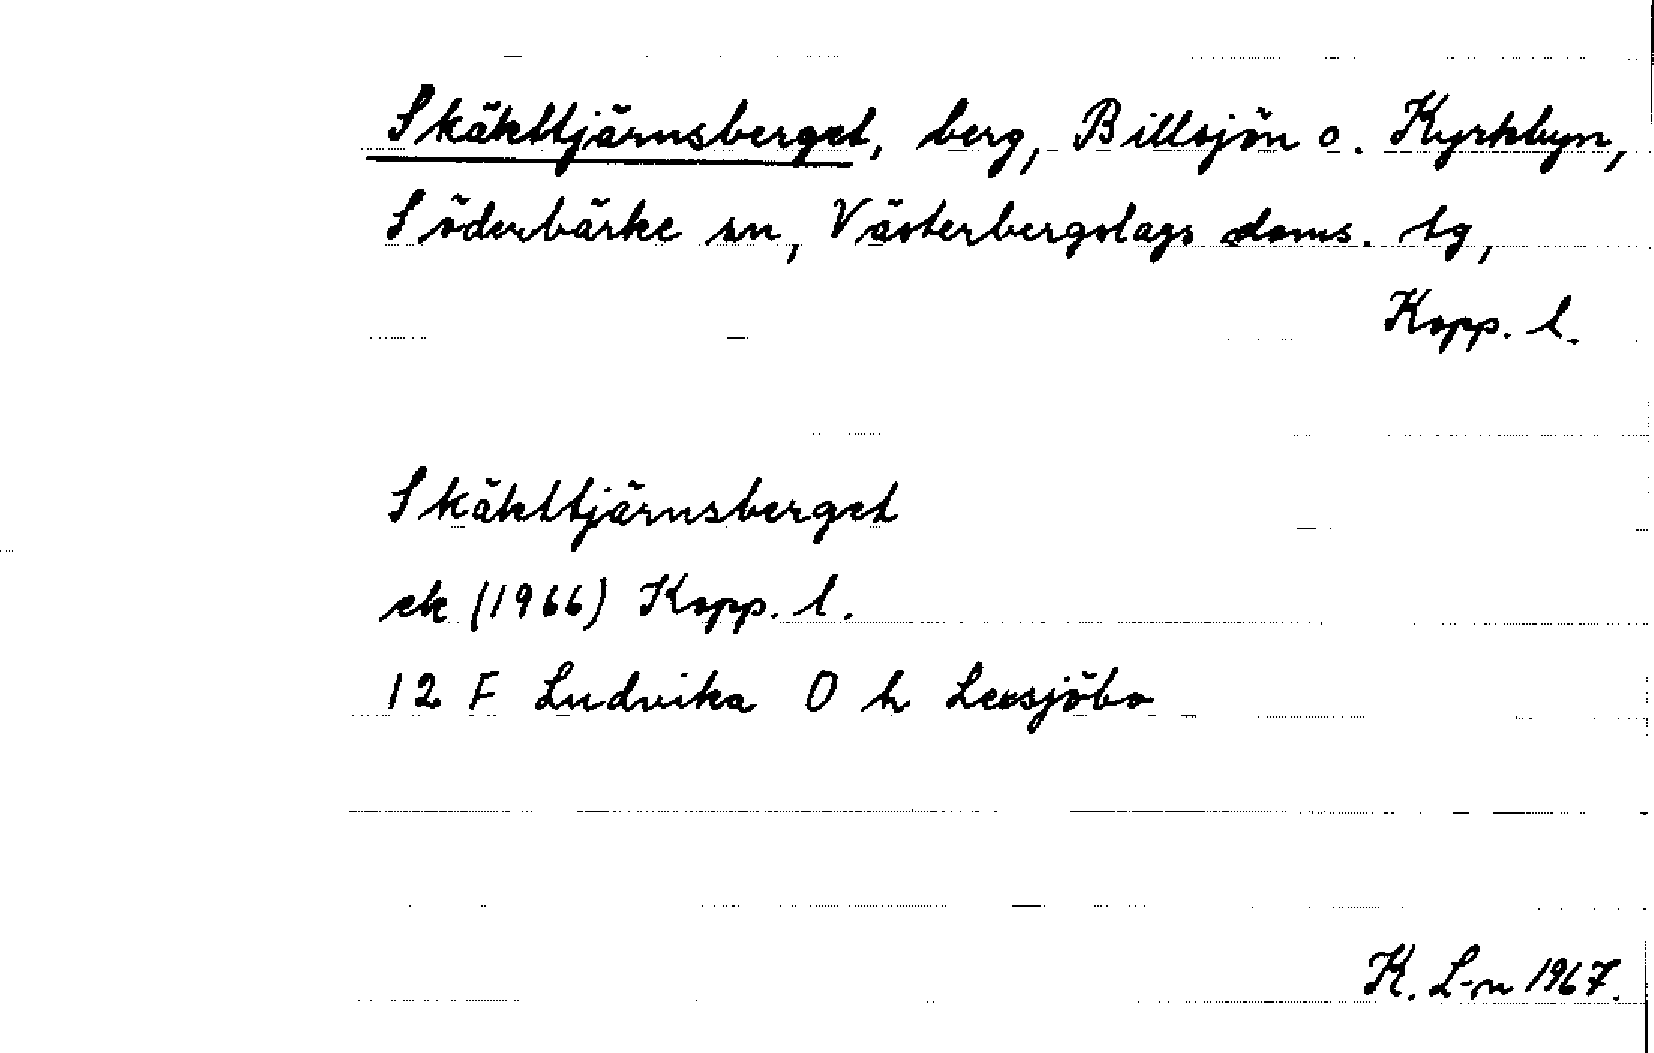 Skäkttjärnsberget, berg, Billsjön o. Kyrkbyn,
Söderbärke sn, Västerbergslags doms. tg,
Kopp. l.
Skäkttjärnsberget
ek (1966) Kopp. l.
12 F Ludvika O h Leksjöbo
K. L-n 1967.